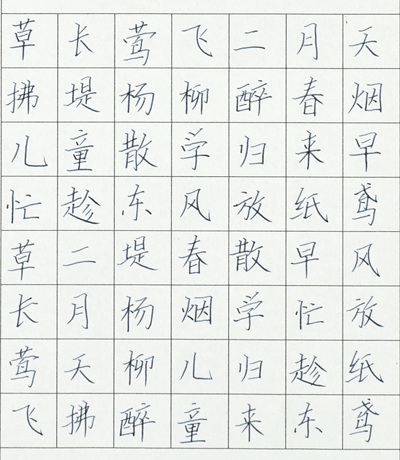 草长莺飞二月天
拂堤杨柳醉春烟
儿童散学归来早
忙趁东风放纸鸢
草二堤春散早风
长月杨烟学忙放
莺天柳儿归趁纸
飞拂醉童来东鸢